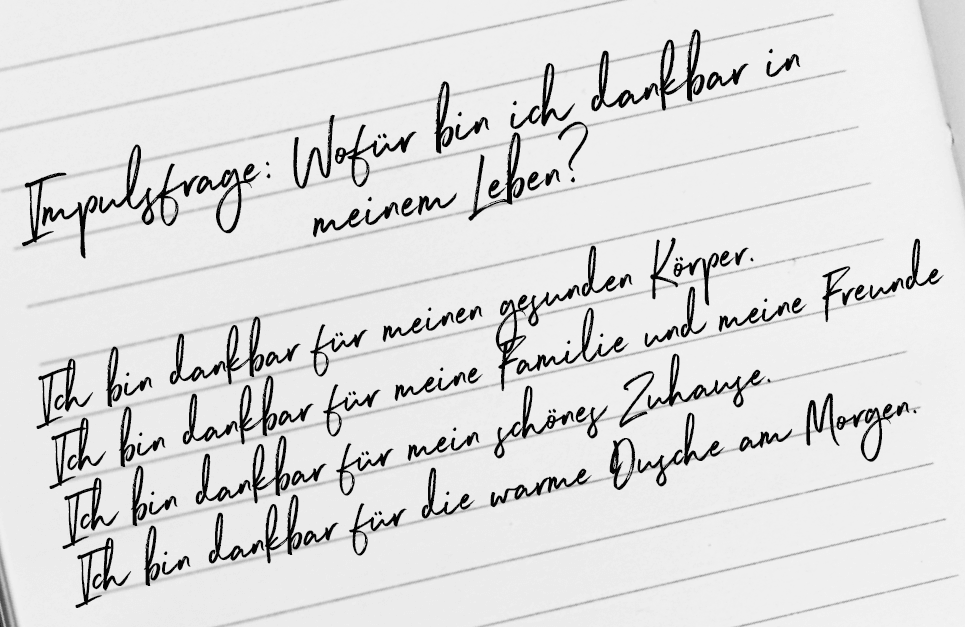 Impulsfrage: Wofür bin ich dankbar in
meinem Leben?
Ich bin dankbar für meinen gesunden Körper.
Ich bin dankbar für meine Familie und meine Freunde
Ich bin dankbar für mein schönes Zuhause.
Ich bin dankbar für die warme Dusche am Morgen.